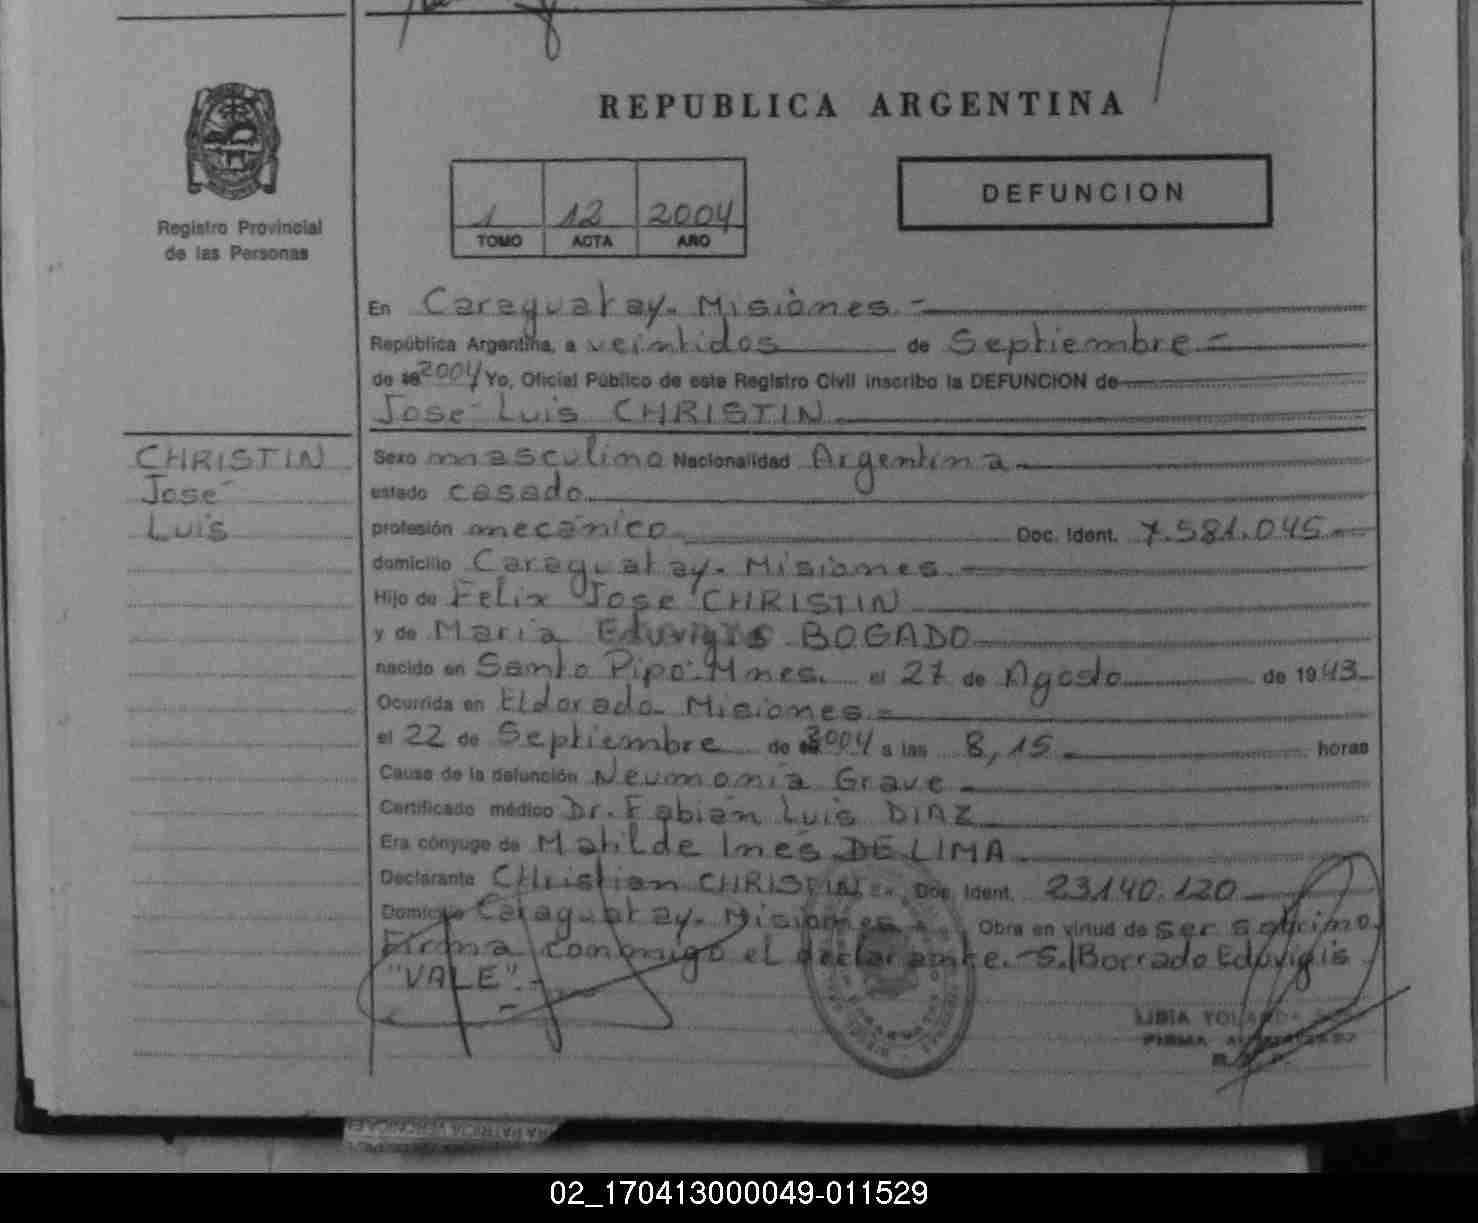 REPUBLICA ARGENTINA
Registro Provincial
de las Personas
1 12 2004
TOMO ACTA AÑO
DEFUNCION
En Caraguatay - Misiones =
República Argentina, a veintidos de Septiembre =
de 2004 Yo, Oficial Público de este Registro Civil inscribo la DEFUNCION de
José Luis CHRISTIN
CHRISTIN
José
Luis
Sexo masculino Nacionalidad Argentina
estado casado
profesión mecánico Doc. Ident. 7.581.045
domicilio Caraguatay - Misiones
Hijo de Felix José CHRISTIN
y de María Eduvigis BOGADO
nacido en Santo Pipó - Mnes. el 27 de Agosto de 1943
Ocurrida en Eldorado - Misiones =
el 22 de Septiembre de 2004 a las 8,15 horas
Causa de la defunción Neumonía Grave
Certificado médico Dr. Fabián Luis DIAZ
Era cónyuge de Matilde Inés DE LIMA
Declarante Christian CHRISTIN Doc. Ident. 23.140.120
Domicilio Caraguatay - Misiones Obra en virtud de ser sobrino.
Firma conmigo el declarante. - S/Borrado Eduvigis
"VALE". -
LIBIA YOLANDA
FIRMA
02_170413000049-011529